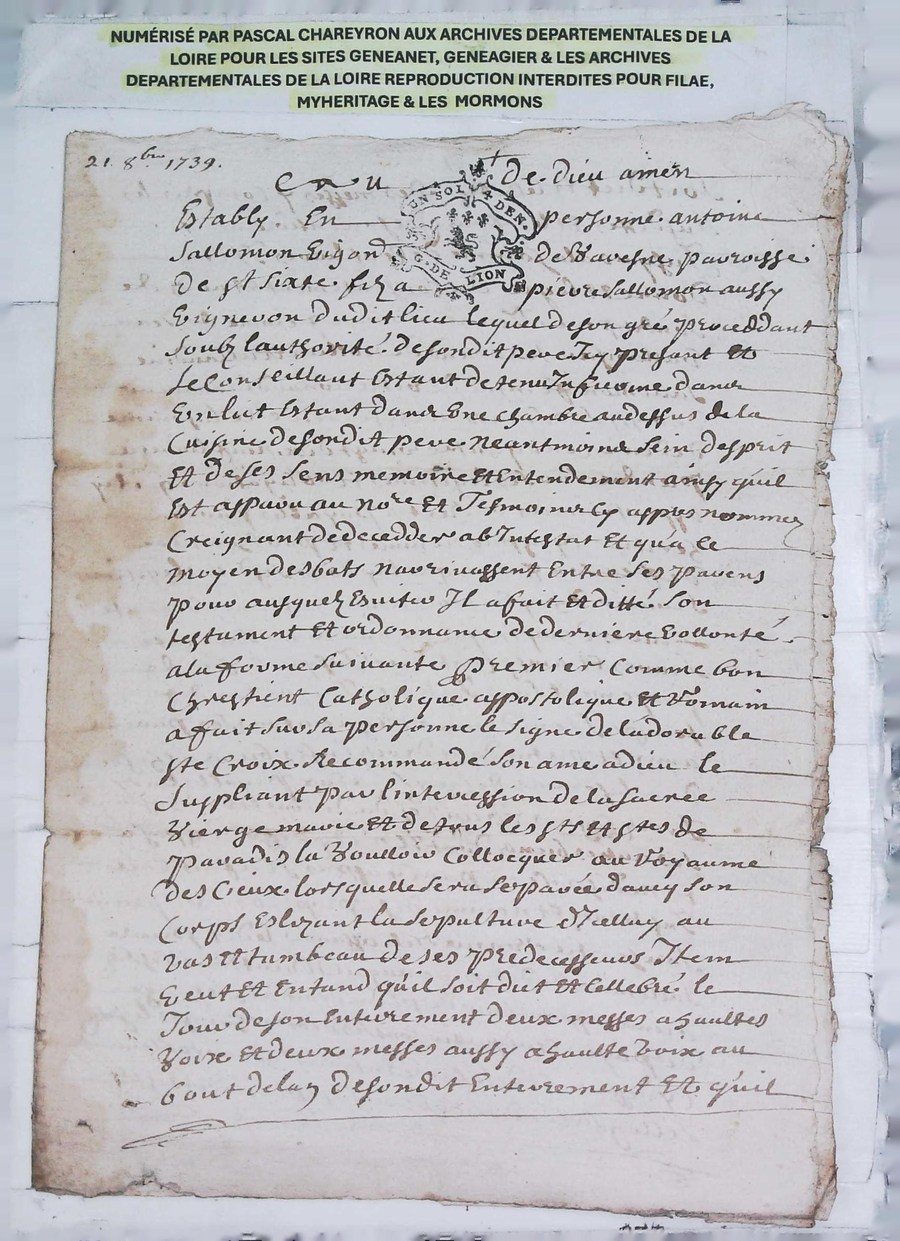 NUMÉRISÉ PAR PASCAL CHAREYRON AUX ARCHIVES DEPARTEMENTALES DE LA
LOIRE POUR LES SITES GENEANET, GENEAGIER & LES ARCHIVES
DEPARTEMENTALES DE LA LOIRE REPRODUCTION INTERDITES POUR FILAE,
MYHERITAGE & LES MORMONS
21. 8bre 1739.
de dieu amen
UN SOL 4 DEN.
G. DE LION
Estably En personne antoine
Sallomon de Vavesne parroisse
De st Sixte filz a pierre Sallomon aussy
Vigneron dudit lieu lequel de son gré proceddant
soubz lauthorité de sondit pere Icy presant Et
Le Conseillant Estant detenu Infirme dans
Un lict Estant dans Une chambre au dessus de la
Cuisine de sondit pere neantmoins sein desprit
Et de ses sens memoire Et Entendement ainsy quil
Est apparu au nore Et Tesmoins cy appres nommez
Creignant de decedder ab Intestat Et qua ce
moyen desbats narrivassent Entre ses parens
pour ausquelz Esviter Il a fait Et ditté son
testament Et ordonnance de derniere vollonté
a la forme suivante premier Comme bon
Chrestient Catholique appostolique Et Romain
a fait sur sa personne le signe de ladorable
ste Croix Recommandé son ame a dieu le
Suppliant par lintercession de la sacrée
Vierge marie Et de tous les sts Et stes de
paradis la Voulloir Collocquer au Royaume
des Cieux lorsquelle sera separée davey son
Corps Eslizant la sepulture dIcelluy au
vas Et tumbeau de ses predecesseurs Item
Veut Et Entand quil soit dict Et Cellebré le
Jour de son Enterrement deux messes a haultes
Voix Et deux messes aussy a haulte voix au
bout de lan de sondit Enterrement Et quil